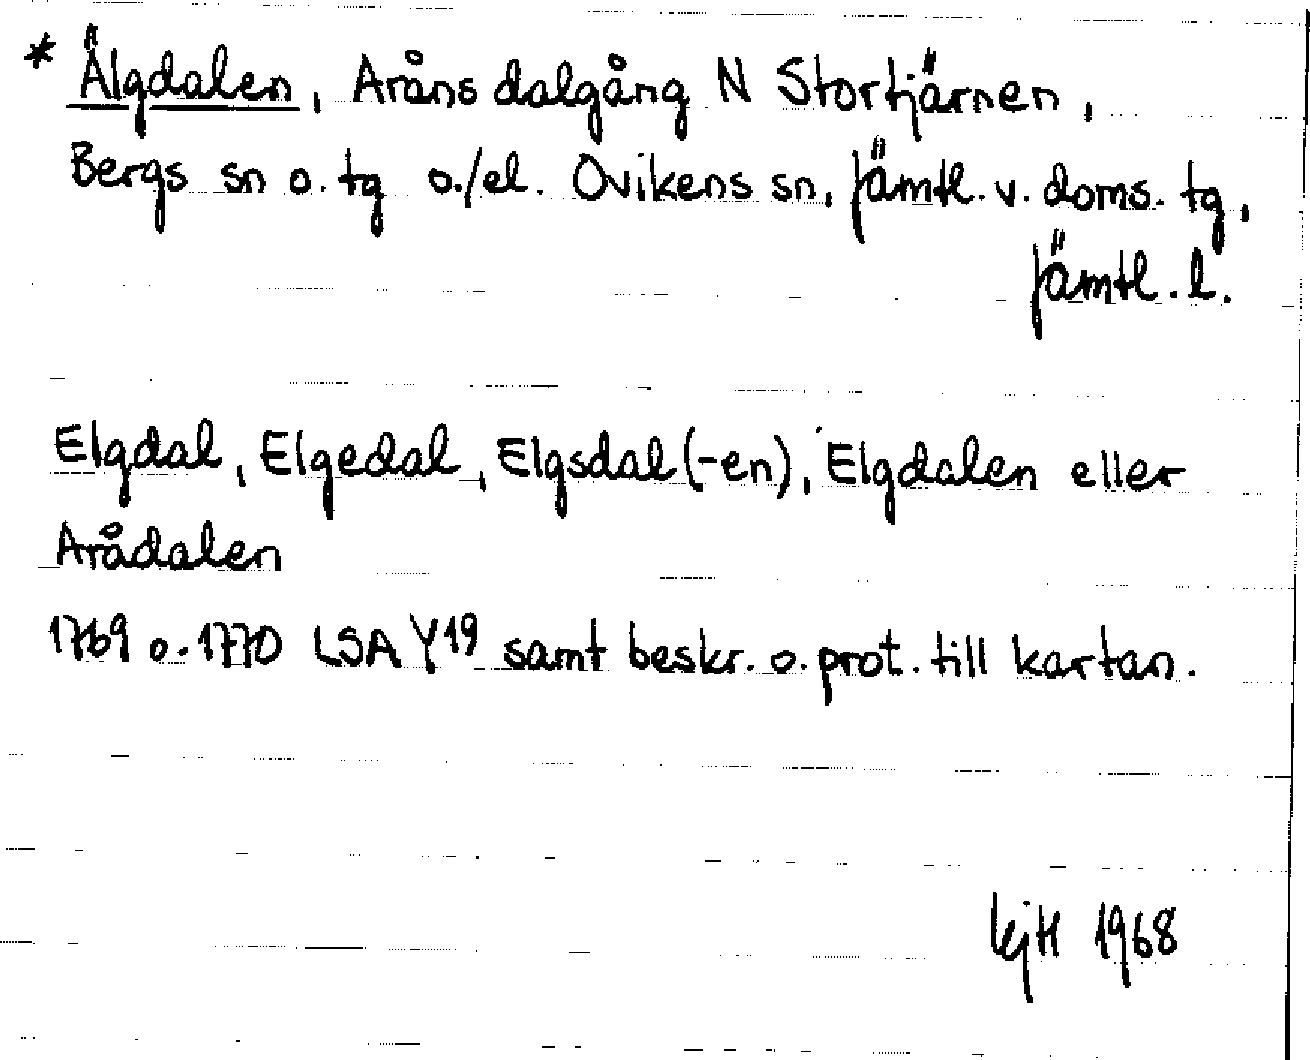 * Älgdalen, Aråns dalgång N Stortjärnen,
Bergs sn o. tg o./el. Ovikens sn, Jämtl. v. doms. tg,
Jämtl. l.
Elgdal, Elgedal, Elgsdal(-en), Elgdalen eller
Arådalen
1769 o. 1770 LSA Y19 samt beskr. o. prot. till kartan.
KjH 1968